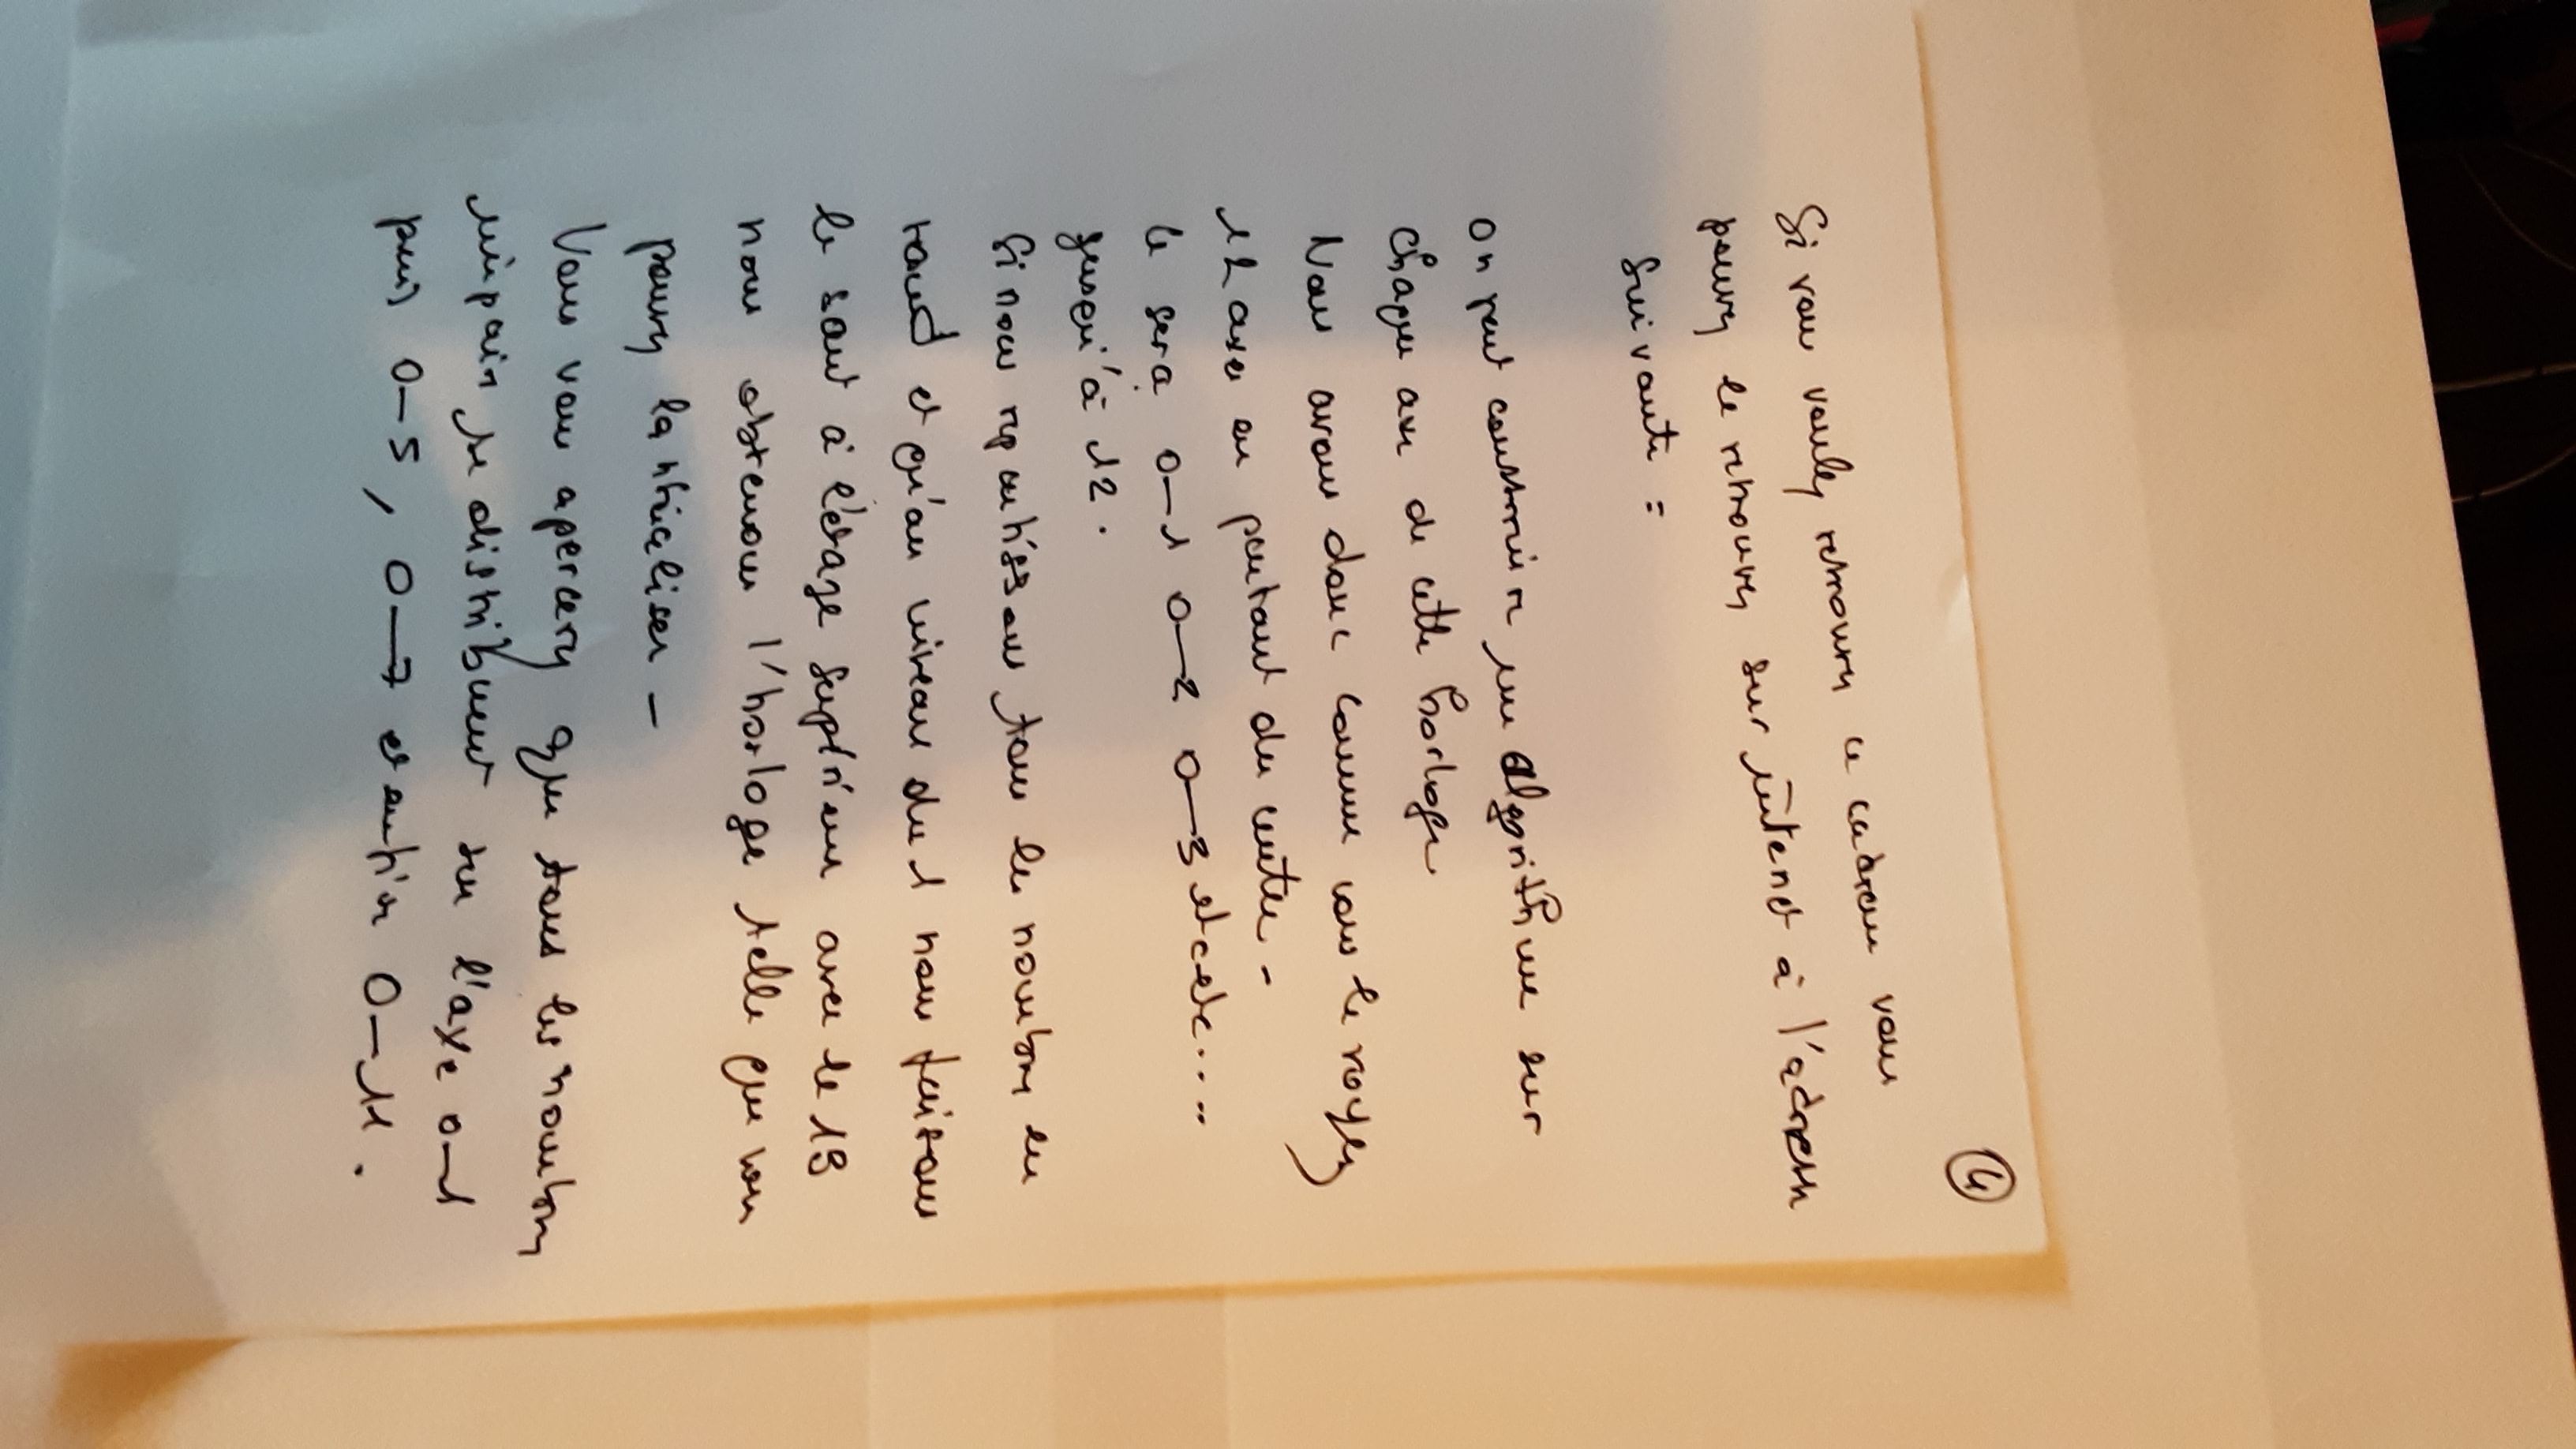 ④
Si vous voulez retrouver ce cadran vous
pouvez le retrouver sur intenet à l'adresse
suivante =
on peut construire un algorithme sur
chaque axe de cette horloge
Nous avons donc comme vous le voyez
12 axes en partant du centre -
Ce sera 0-1 0-2 0-3 etcetc....
jusqu'à 12.
Si nous répartissons tous les nombres en
rond et qu'au niveau du 1 nous faisons
le saut à l'étage supérieur avec le 13
nous obtenons l'horloge telle que vous
pouvez la
Vous vous apercevez que tous les nombres
impairs se distribuent sur l'axe 0-1
puis 0-5, 0-7 et enfin 0-11.